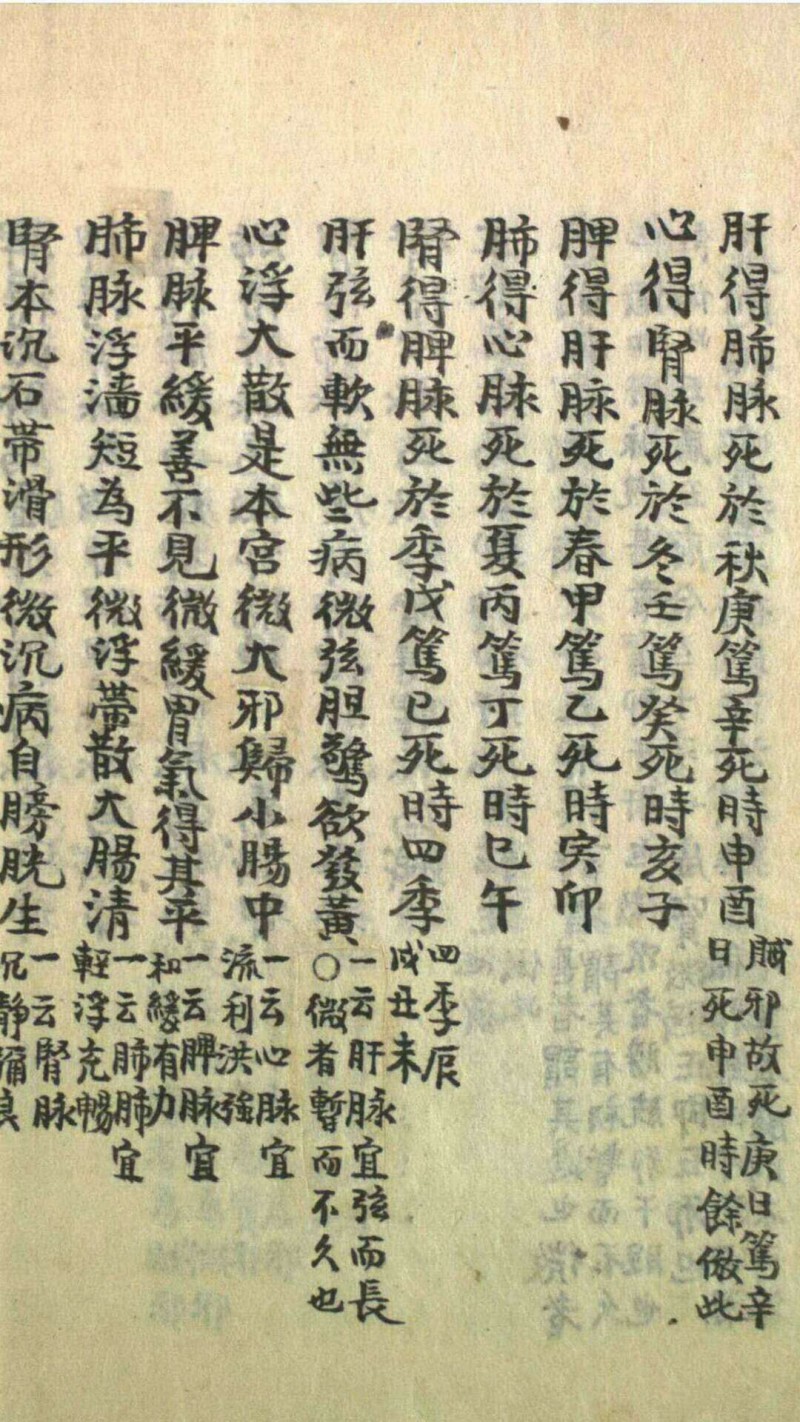 肝得肺脉死於秋庚篤辛死時申酉
賊邪故死庚日篤辛
日死申酉時餘倣此
心得腎脉死於冬壬篤癸死時亥子
脾得肝脉死於春甲篤乙死時寅卯
肺得心脉死於夏丙篤丁死時巳午
腎得脾脉死於季戊篤已死時四季
四季辰
戌丑未
肝弦而軟無些病微弦胆驚欲發黃
一云肝脉宜弦而長
○微者暫而不久也
心浮大散是本宮微大邪歸小腸中
一云心脉宜
流利洪强
脾脉平緩善不見微緩胃氣得其平
一云脾脉宜
和緩有力
肺脉浮濇短為平微浮帶散大腸清
一云肺肺宜
輕浮充暢
腎本沉石帶滑形微沉病自膀胱生
一云腎脉
沉静濔